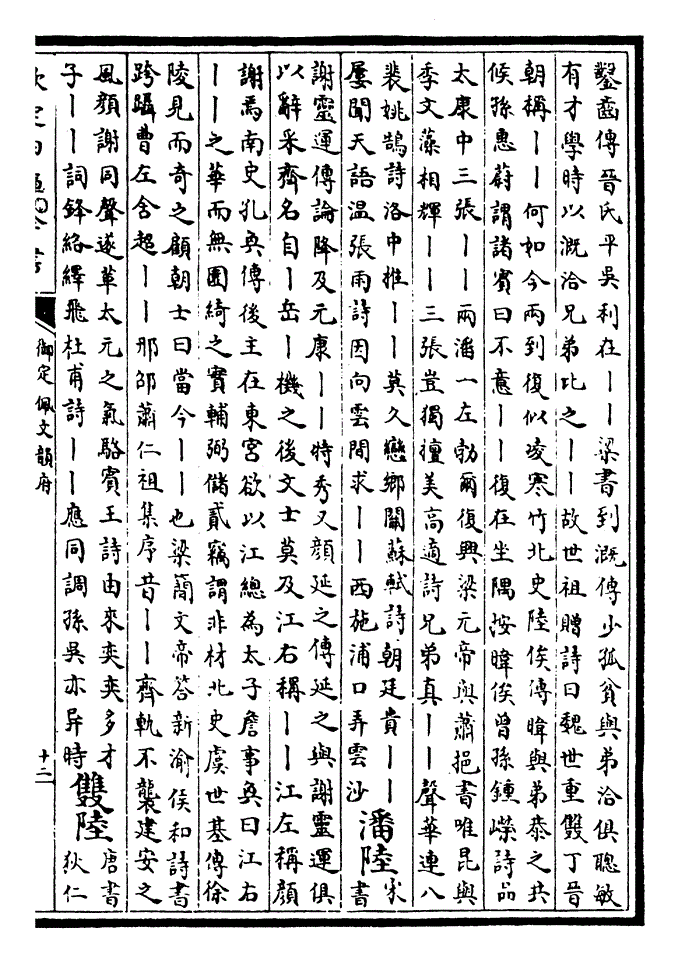 鑿齒傳晉氏平吳利在丨丨梁書到溉傳少孤貧與弟洽俱聰敏
有才學時以溉洽兄弟比之丨丨故世祖贈詩曰魏世重雙丁晉
朝稱丨丨何如今兩到復似凌寒竹北史陸俟傳暐與弟恭之共
候孫惠蔚謂諸賓曰不意丨丨復在坐隅按暐俟曾孫鍾嶸詩品
太康中三張丨丨兩潘一左勃爾復興梁元帝與蕭挹書唯昆與
季文藻相輝丨丨三張豈獨擅美高適詩兄弟真丨丨聲華連八
裴姚鵠詩洛中推丨丨莫久戀鄉關蘇軾詩朝廷貴丨丨
屢聞天語溫張雨詩因向雲間求丨丨西施浦口弄雲沙
潘陸宋書
謝靈運傳論降及元康丨丨特秀又顏延之傳延之與謝靈運俱
以辭采齊名自丨岳丨機之後文士莫及江右稱丨丨江左稱顏
謝焉南史孔奐傳後主在東宮欲以江總為太子詹事奐曰江右
丨丨之華而無園綺之實輔弼儲貳竊謂非材北史虞世基傳徐
陵見而奇之顧朝士曰當今丨丨也梁簡文帝答新渝侯和詩書
跨躡曹左含超丨丨邢邵蕭仁祖集序昔丨丨齊軌不襲建安之
風顏謝同聲遂革太元之氣駱賓王詩由來奕奕多才
子丨丨詞鋒絡繹飛杜甫詩丨丨應同調孫吳亦異時
雙陸唐書
狄仁
御定佩文韻府
十二